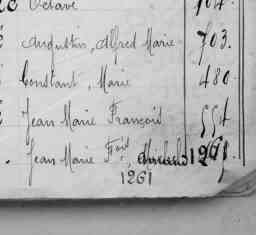 Octave 704.
Augustin, Alfred Marie 703.
Constant, Marie 480
Jean Marie François 554
Jean Marie Fois 1261.
1261